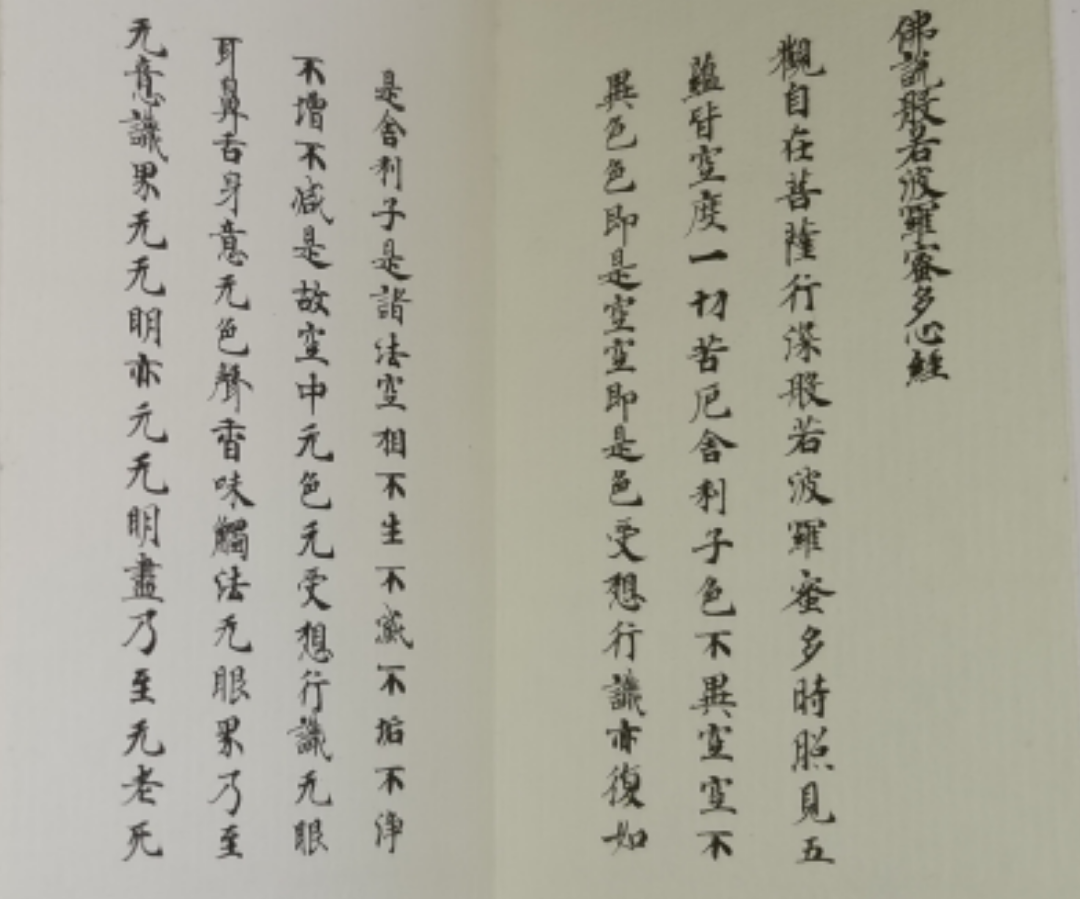 佛說般若波羅蜜多心經
觀自在菩薩行深般若波羅蜜多時照見五
蘊皆空度一切苦厄舍利子色不異空空不
異色色即是空空即是色受想行識亦復如
是舍利子是諸法空相不生不滅不垢不淨
不增不減是故空中无色无受想行識无眼
耳鼻舌身意无色聲香味觸法无眼界乃至
无意識界无无明亦无无明盡乃至无老死